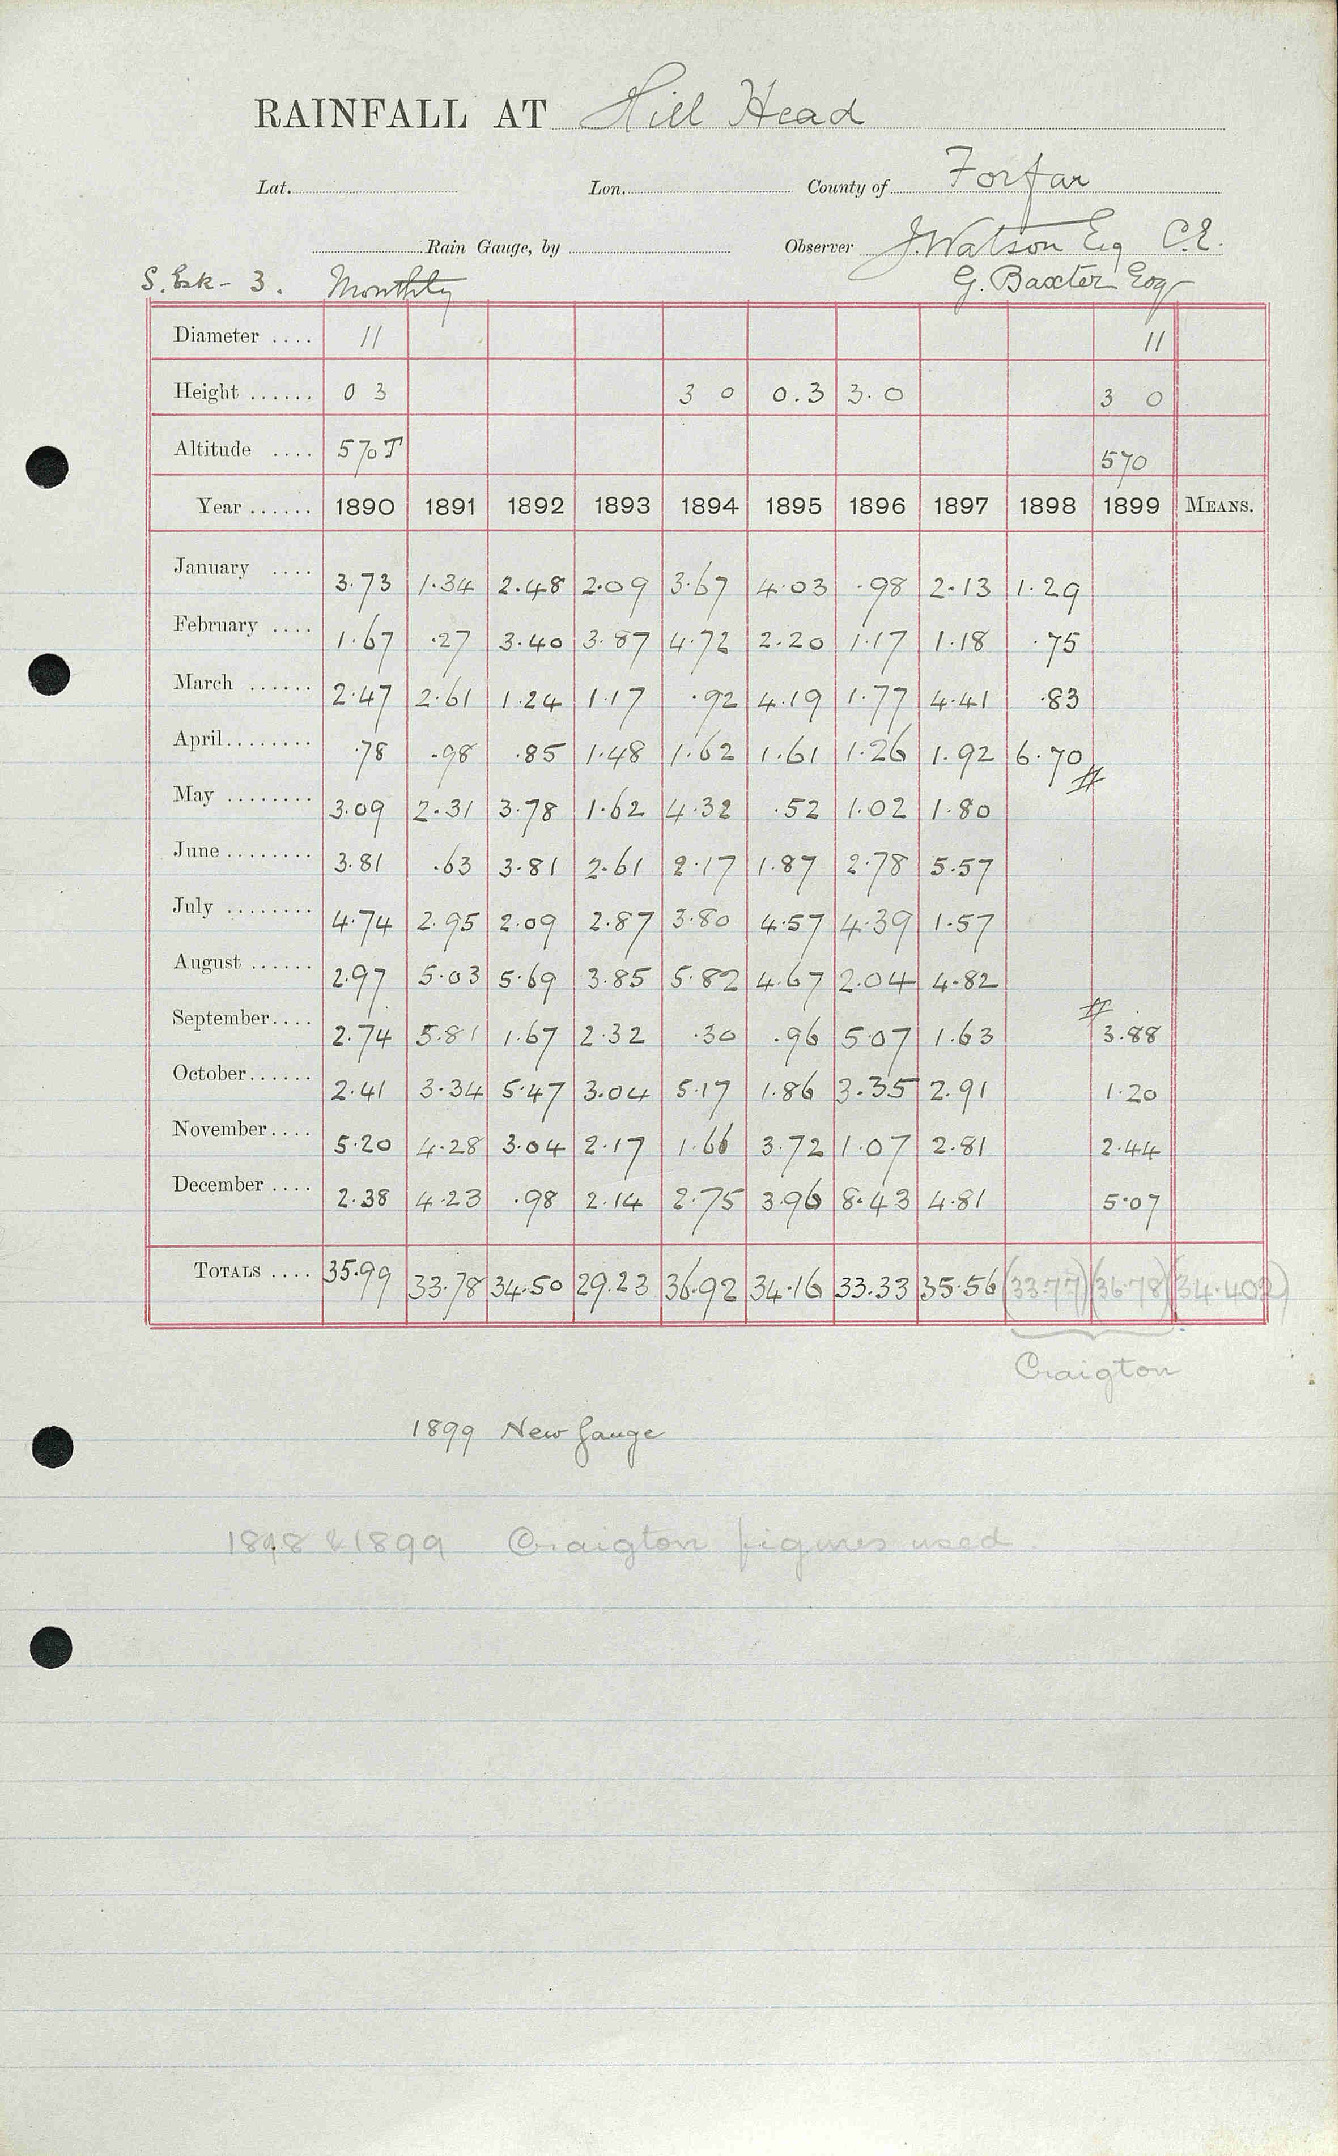 RAINFALL AT Hill Head
Lat. Lon. County of Forfar
Rain Gauge, by Observer J. Watson Esq C.E.
S. Esk - 3. Monthly G. Baxter Esq
Diameter .... 11 11
Height ...... 0 3 3 0 0.3 3.0 3 0
Altitude .... 570T 570
Year ...... 1890 1891 1892 1893 1894 1895 1896 1897 1898 1899 MEANS.
January .... 3.73 1.34 2.48 2.09 3.67 4.03 .98 2.13 1.29
February .... 1.67 .27 3.40 3.87 4.72 2.20 1.17 1.18 .75
March ...... 2.47 2.61 1.24 1.17 .92 4.19 1.77 4.41 .83
April........ .78 .98 .85 1.48 1.62 1.61 1.26 1.92 6.70
May ........ 3.09 2.31 3.78 1.62 4.32 .52 1.02 1.80
June ........ 3.81 .63 3.81 2.61 2.17 1.87 2.78 5.57
July ........ 4.74 2.95 2.09 2.87 3.80 4.57 4.39 1.57
August ...... 2.97 5.03 5.69 3.85 5.82 4.67 2.04 4.82
September.... 2.74 5.81 1.67 2.32 .30 .96 5.07 1.63 3.88
October...... 2.41 3.34 5.47 3.04 5.17 1.86 3.35 2.91 1.20
November.... 5.20 4.28 3.04 2.17 1.66 3.72 1.07 2.81 2.44
December .... 2.38 4.23 .98 2.14 2.75 3.96 8.43 4.81 5.07
TOTALS .... 35.99 33.78 34.50 29.23 36.92 34.16 33.33 35.56 (33.77) (36.78) (34.402)
Craigton
1899 New Gauge
1898 & 1899 Craigton figures used.